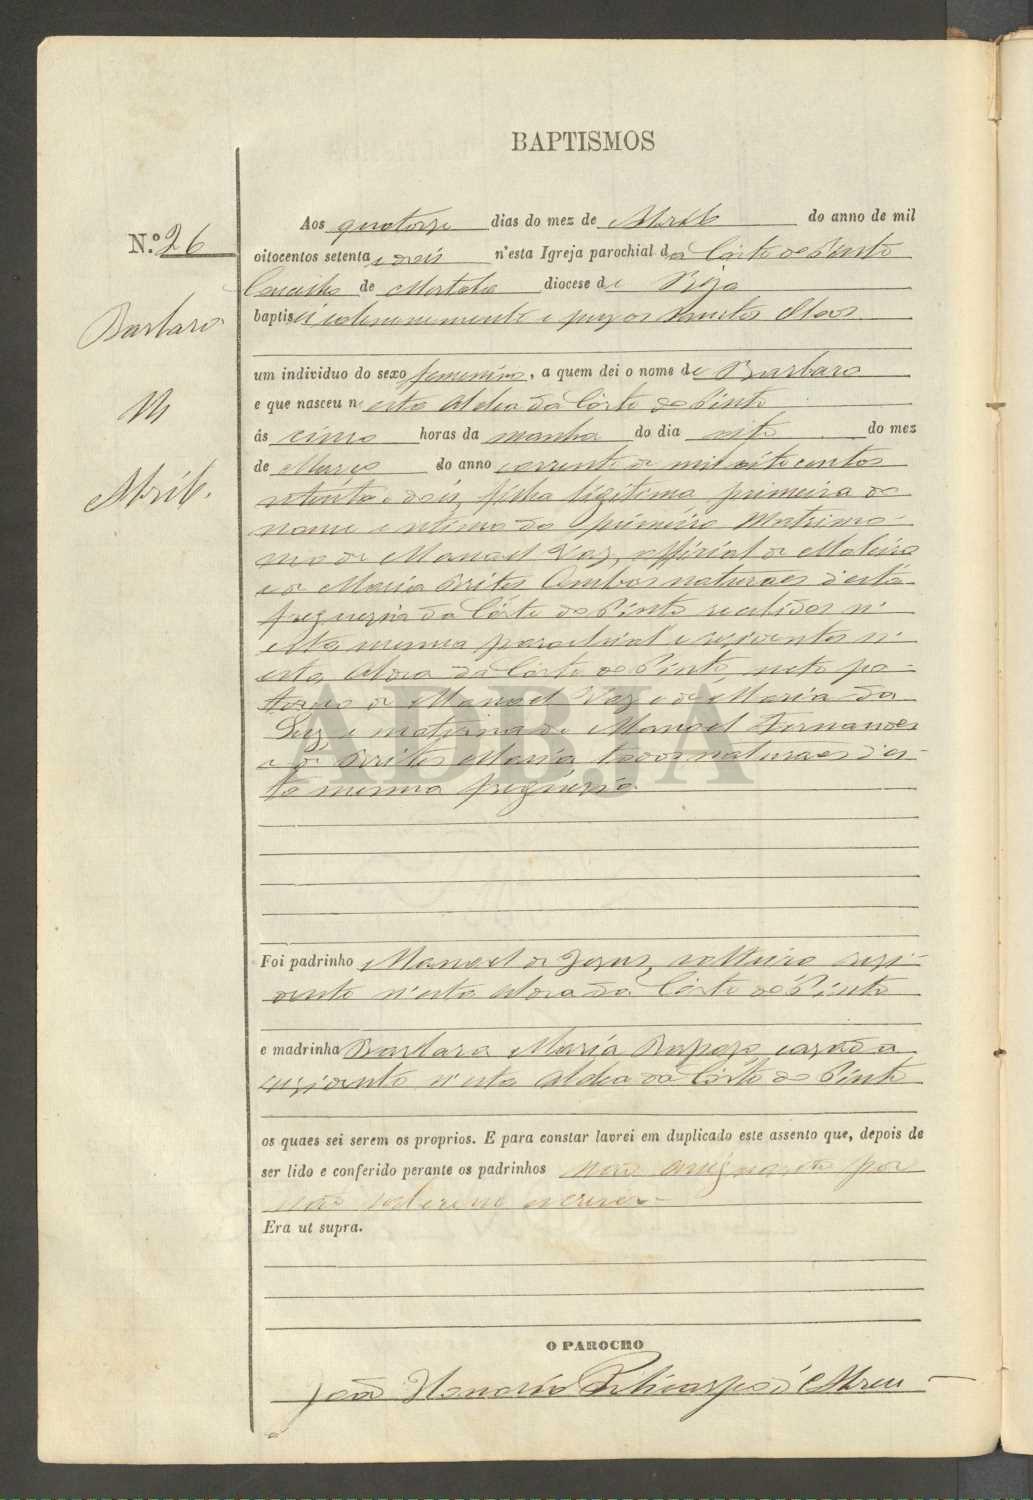 BAPTISMOS
N.º 26
Barbara
M
Abril.
Aos quatorze dias do mez de Abril do anno de mil
oitocentos setenta e seis n'esta Igreja parochial da Côrte do Pinto
Concelho de Mertola diocese de Beja
baptisei solemnemente e puz os Santos Oleos
um individuo do sexo femenino, a quem dei o nome de Barbara
e que nasceu n'esta Aldea da Côrte do Pinto
ás cinco horas da manha do dia oito do mez
de Março do anno corrente de mil oito centos
setenta e seis, filha legitima primeira do
nome e setima do primeiro Matrimo-
nio de Manoel Vaz, official de
e de Maria Brites Ambos naturaes d'esta
freguezia da Côrte do Pinto recebidos n'
esta mesma parochial e rezidentes n'
esta Aldea da Côrte do Pinto, neta pa-
terna de Manoel Vaz e de Maria da
Luz e materna de Manoel Fernandes
e de Brites Maria todos naturaes d'es-
ta mesma freguezia.
Foi padrinho Manoel de Jezus, solteiro rezi-
dente n'esta Aldea da Côrte do Pinto
e madrinha Barbara Maria Rapozo cazada
rezidente n'esta Aldea da Côrte do Pinto
os quaes sei serem os proprios. E para constar lavrei em duplicado este assento que, depois de
ser lido e conferido perante os padrinhos não assignarão por
não saberem escrever.
Era ut supra.
O PAROCHO
João Honorio Policarpo d'Abreu
ADBJA